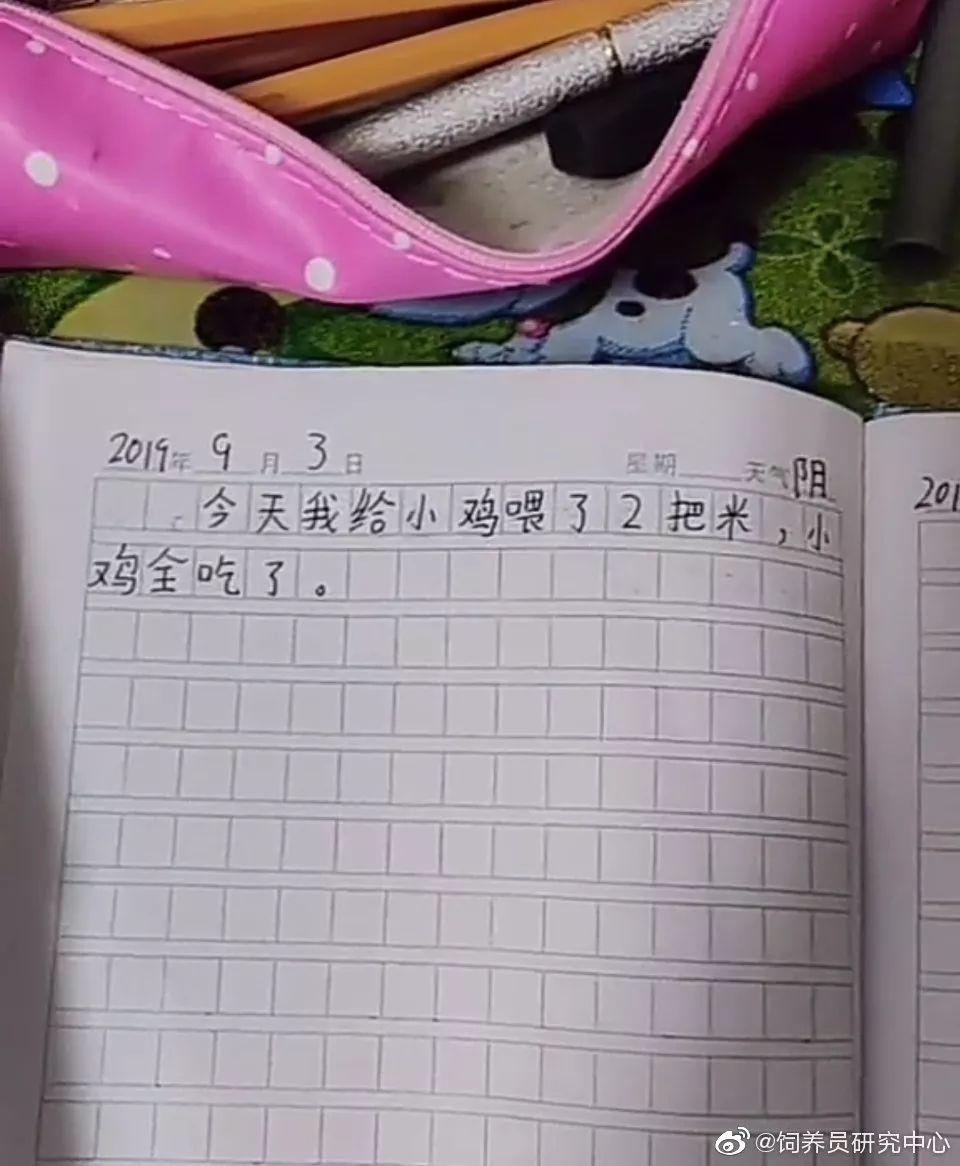 2019年 9 月 3 日 星期 天气 阴
今天我给小鸡喂了2把米，小
鸡全吃了。
201
@饲养员研究中心